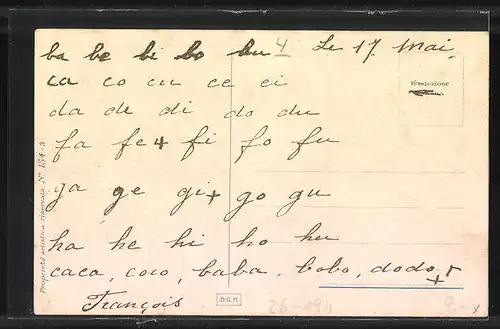 ba be bi bo bu 4 Le 17 Mai
ca co cu ce ci
Produzione
da de di do du
fa fe + fi fo fu
ga ge gi + go gu
ha he hi ho hu
caca, coco, baba, bobo, dodo, +
François
D.G.M.
26-194
Proprietà artistica riservata. N° 154-3